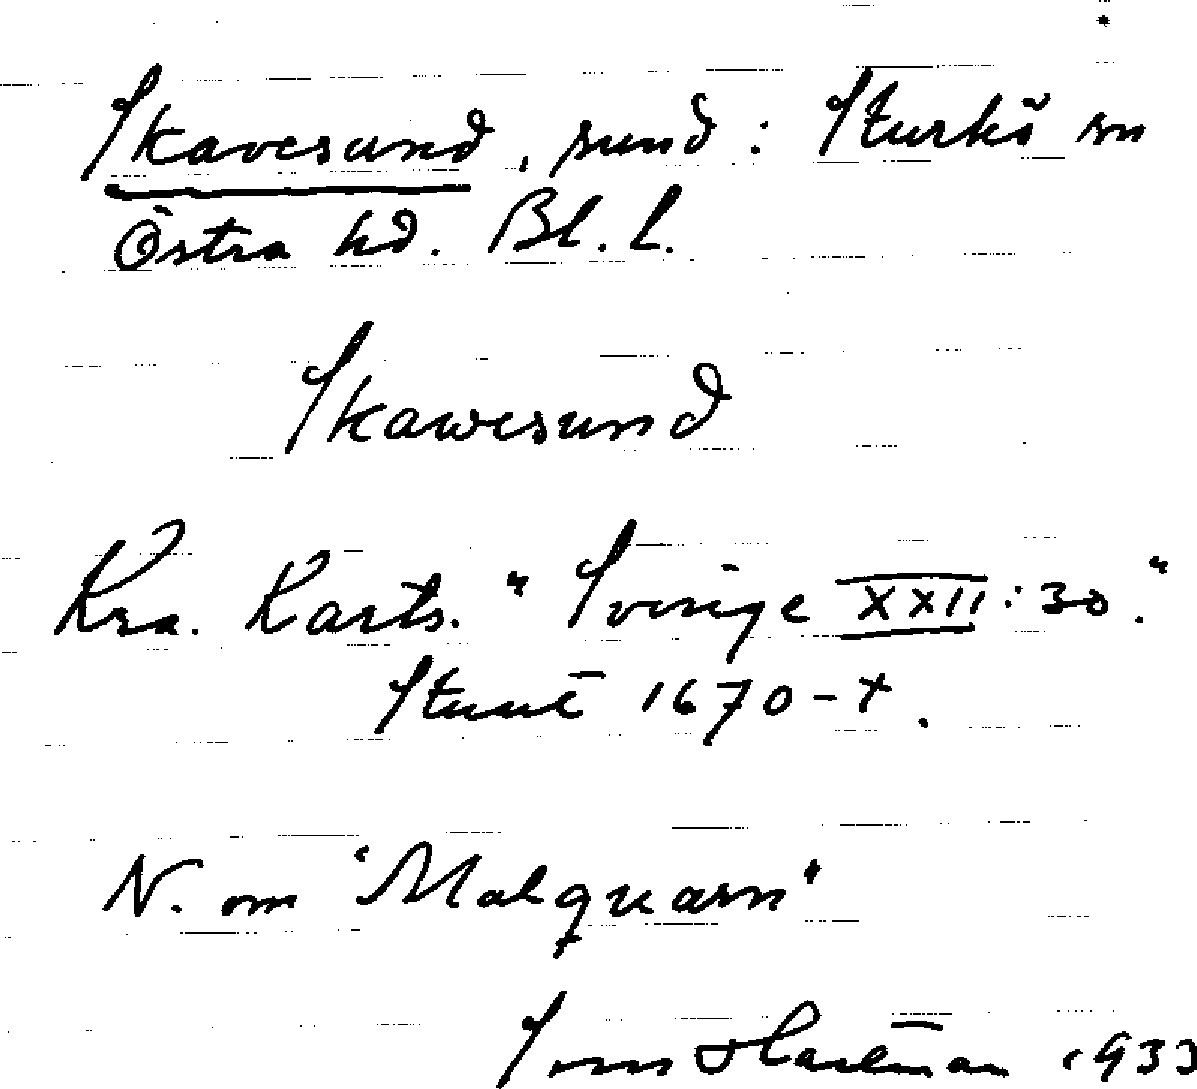 Skavesund, sund: Sturkö sn
Östra hd. Bl. l.
Skawesund
Kra. Karts. "Sverige XXII:30."
1670-t.
N. om 'Malquarn'
1933